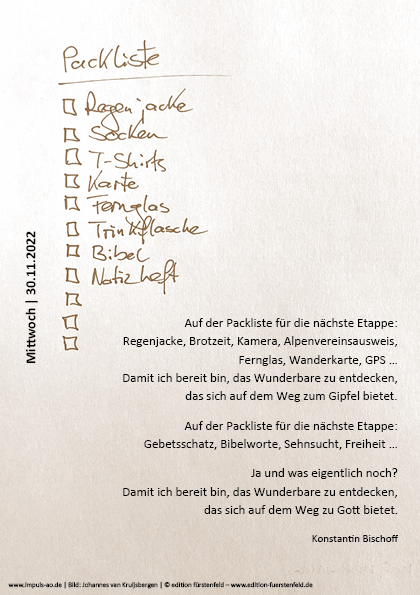 Packliste
Regenjacke
Socken
T-Shirts
Karte
Fernglas
Trinkflasche
Bibel
Notizheft
Mittwoch | 30.11.2022
Auf der Packliste für die nächste Etappe:
Regenjacke, Brotzeit, Kamera, Alpenvereinsausweis,
Fernglas, Wanderkarte, GPS ...
Damit ich bereit bin, das Wunderbare zu entdecken,
das sich auf dem Weg zum Gipfel bietet.
Auf der Packliste für die nächste Etappe:
Gebetsschatz, Bibelworte, Sehnsucht, Freiheit ...
Ja und was eigentlich noch?
Damit ich bereit bin, das Wunderbare zu entdecken,
das sich auf dem Weg zu Gott bietet.
Konstantin Bischoff
www.impuls-ao.de | Bild: Johannes van Kruijsbergen | © edition fürstenfeld – www.edition-fuerstenfeld.de